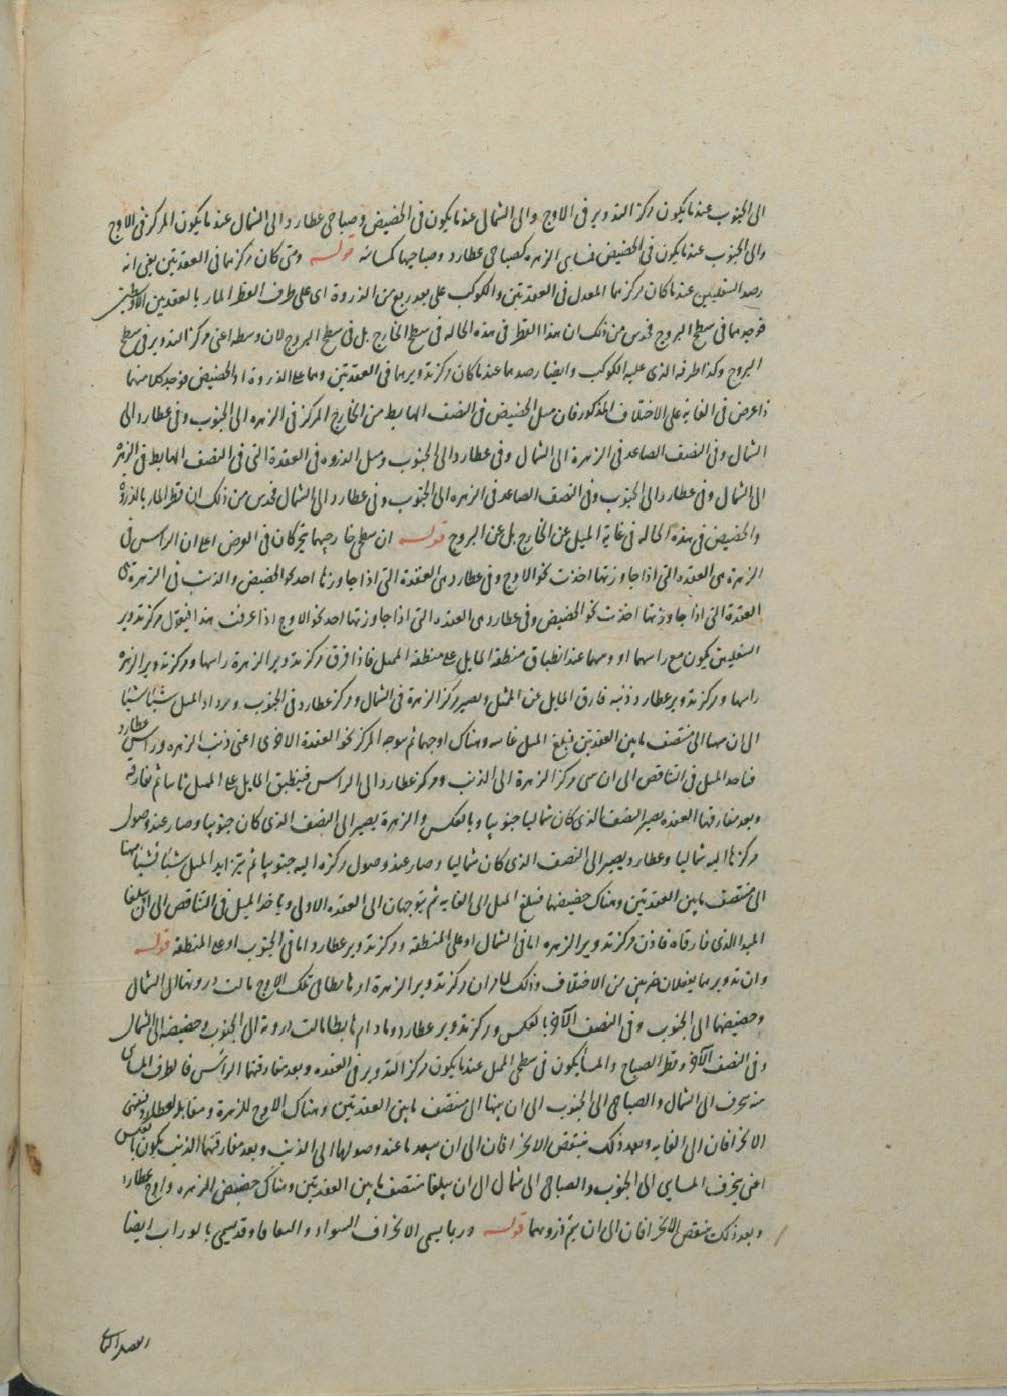 الى الجنوب عند ما يكون مركز التدوير فى الاوج والى الشمال عند ما يكون فى الحضيض وصباحى عطارد الى الشمال عند ما يكون المركز فى الاوج
والى الجنوب عند ما يكون فى الحضيض فمسائى الزهره كصباحى عطارد وصباحيها كمسائه قوله ومتى كان مركزهما فى العقدتين يعنى انه
رصد السفليين عند ما كان مركزهما المعدل فى العقدتين والكوكب على بعد ربع من الذروة اى على طرف القطر المار بالبعدين الاوسطين
فوجدهما فى سطح البروج فحدس من ذلك ان هذا القطر فى هذه الحاله فى سطح الخارج بل فى سطح البروج لان وسطه اعنى مركز التدوير فى سطح
البروج وكذا طرفه الذى عليه الكوكب وايضا رصدهما عند ما كان مركز تدويرهما فى العقدتين وهما على الذروة او الحضيض فوجد كلا منهما
ذا عرض فى الغاية على الاختلاف المذكور فان ميل الحضيض فى النصف الهابط من الخارج المركز فى الزهره الى الجنوب وفى عطارد الى
الشمال وفى النصف الصاعد فى الزهرة الى الشمال وفى عطارد الى الجنوب وميل الذروه فى العقدة التى فى النصف الهابط فى الزهرة
الى الشمال وفى عطارد الى الجنوب وفى النصف الصاعد فى الزهره الى الجنوب وفى عطارد الى الشمال فحدس من ذلك ان القطر المار بالذروة
والحضيض فى هذه الحاله فى غاية الميل عن الخارج بل عن البروج قوله ان سطحى خارجيهما يتحركان فى العرض اعلم ان الراس فى
الزهرة هى العقده التى اذا جاوزتها اخذت نحو الاوج وفى عطارد هى العقدة التى اذا جاوزها اخذ نحو الحضيض والذنب فى الزهرة هى
العقدة التى اذا جاوزتها اخذت نحو الحضيض وفى عطارد هى العقده التى اذا جاوزتها اخذ نحو الاوج اذا عرفت هذا فنقول مركز تدوير
السفليين يكون مع راسهما او ذنبهما عند انطباق منطقة المايل على منطقة الممثل فاذا فارق مركز تدوير الزهرة راسها ومركز تدوير الزهره
راسها ومركز تدوير عطارد ذنبه فارق المايل عن الممثل ويصير مركز الزهرة فى الشمال ومركز عطارد فى الجنوب ويزداد الميل شيئا شيئا
الى ان ينتهيا الى منتصف ما بين العقدتين فبلغ الميل غايته وهناك اوجهما ثم يتوجه المركز نحو العقدة الاخرى اعنى ذنب الزهره وراس عطارد
فياخذ الميل فى التناقص الى ان ينتهى مركز الزهرة الى الذنب ومركز عطارد الى الراس فينطبق المايل على الممثل ثانيا ثم يفارقه
وبعد مفارقتها العقده يصير النصف الذى كان شماليا جنوبيا وبالعكس والزهرة يصير الى النصف الذى كان جنوبيا وصار عند وصول
مركزها اليه شماليا وعطارد يصير الى النصف الذى كان شماليا وصار عند وصول مركزه اليه جنوبيا ثم يتزايد الميل شيئا فشيئا الى
الى منتصف ما بين العقدتين وهناك حضيضهما فبلغ الميل الى الغايه ثم يتوجهان الى العقده الاولى وياخذ الميل فى التناقص الى ان يبلغا
المبدا الذى فارقاه فاذن مركز تدوير الزهره اما فى الشمال او على المنطقة ومركز تدوير عطارد اما فى الجنوب او على المنطقة قوله
وان تدويرهما يفعلان ضربين من الاختلاف وذلك لان مركز تدوير الزهرة اذا هابطا من تلك الاوج مالت ذروتها الى الشمال
وحضيضها الى الجنوب وفى النصف الآخر بالعكس ومركز تدوير عطارد مادام هابطا مالت ذروته الى الجنوب وحضيضه الى الشمال
وفى النصف الآخر وقطر الصباح والمسا يكون فى سطح الممثل عند ما يكون مركز التدوير فى العقده وبعد مفارقتها الراس فالطرف المسائى
منه ينحرف الى الشمال والصباحى الى الجنوب الى ان ينتهيا الى منتصف ما بين العقدتين وهناك الاوج للزهرة ومقابله لعطارد وينتهى
الانحرافان الى الغايه وبعد ذلك ينتقص الانحرافان الى ان ينعدما عند وصولهما الى الذنب وبعد مفارقتهما الذنب يكون بالعكس
اعنى ينحرف المسايى الى الجنوب والصباحى الى الشمال الى ان يبلغا منتصف ما بين العقدتين وهناك حضيض الزهره واوج عطارد
وبعد ذلك ينتقص الانحرافان الى ان يتم دورهما قوله وربما يسمى الانحراف السواء والالتفاف وقد يسمى بالوراب ايضا